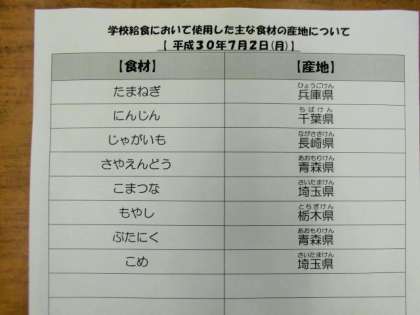 学校給食において使用した主な食材の産地について
【 平成30年7月2日(月) 】
【食材】 【産地】
たまねぎ 兵庫県(ひょうごけん)
にんじん 千葉県(ちばけん)
じゃがいも 長崎県(ながさきけん)
さやえんどう 青森県(あおもりけん)
こまつな 埼玉県(さいたまけん)
もやし 栃木県(とちぎけん)
ぶたにく 青森県(あおもりけん)
こめ 埼玉県(さいたまけん)